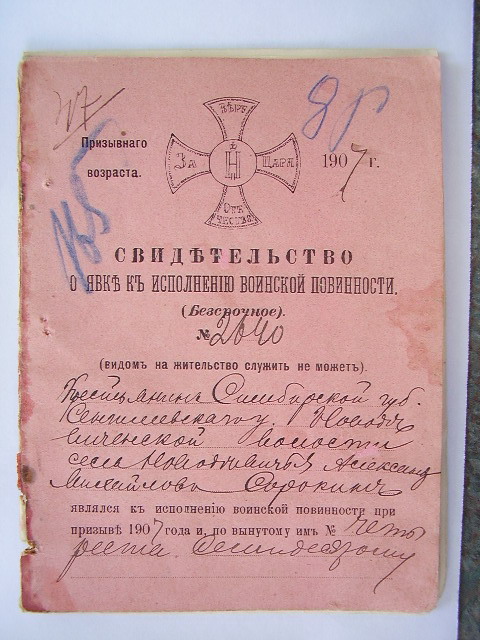 Призывнаго
возраста.
ВѢРУ
ЗА
ЦАРЯ
ОТЕ
ЧЕСТВО
1907 г.
СВИДѢТЕЛЬСТВО
О ЯВКѢ КЪ ИСПОЛНЕНІЮ ВОИНСКОЙ ПОВИННОСТИ.
(Безсрочное).
№ 2640
(видомъ на жительство служить не можетъ).
Крестьянинъ Симбирской губ.
Сенгилеевскаго у. Новодѣ
виченской волости
села Новодѣвичья Александ
Михайловъ Сорокинъ
являлся къ исполненію воинской повинности при
призывѣ 1907 года и, по вынутому имъ № четы
реста